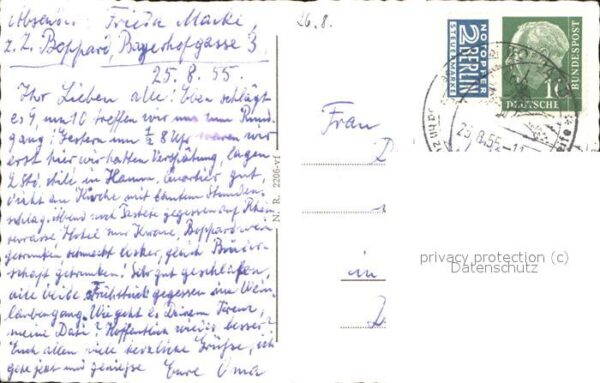 Absender: Frieda Macke,
z. Z. Boppard, Bayerhofgasse 3
25.8.55.
Ihr Lieben alle! Eben schlägt
es 9, um 10 treffen wir uns zum Rund
gang! Gestern um ½ 8 Uhr waren wir
erst hier wir hatten Verspätung, lagen
2 Std. still in Hamm, Quartier gut,
dicht an Kirche mit lautem Stunden-
schlag. Abend noch gegessen auf Rhein
terrasse, Hotel zur Krone, Boppard wein
getrunken schmeckt lecker, gleich Brüder-
schaft getrunken! Sehr gut geschlafen,
alle beide. Frühstück gegessen im Wein-
laubengang. Wie geht es
meine ? Hoffentlich wieder besser?
Euch allen viele herzliche Grüsse, ich
gehe jetzt und genieße Eure Oma
26.8.
N. R. 2206-vf
NOTOPFER
2
BERLIN
STEUERMARKE
10
DEUTSCHE
BUNDESPOST
25.8.55-11
Frau
D
in
privacy protection (c)
Datenschutz